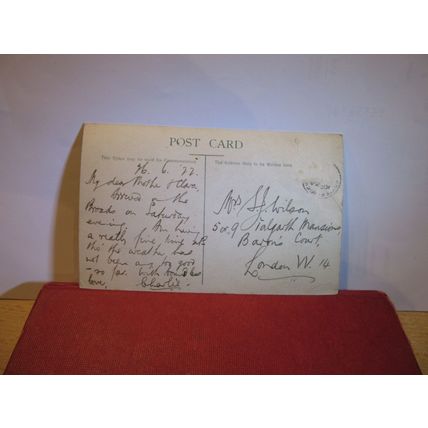 POST CARD
This Space may be used for Communication
The Address Only to be Written here
26. 6. 22.
My dear Mother & Clara,
Arrived on the
Broads on Saturday
evening. Am having
a really fine time
tho' the weather has
not been any too good
- so far. With love,
Charlie.
Mrs S. J. Wilson
5 or 9 Talgarth Mansions,
Baron's Court,
London W. 14